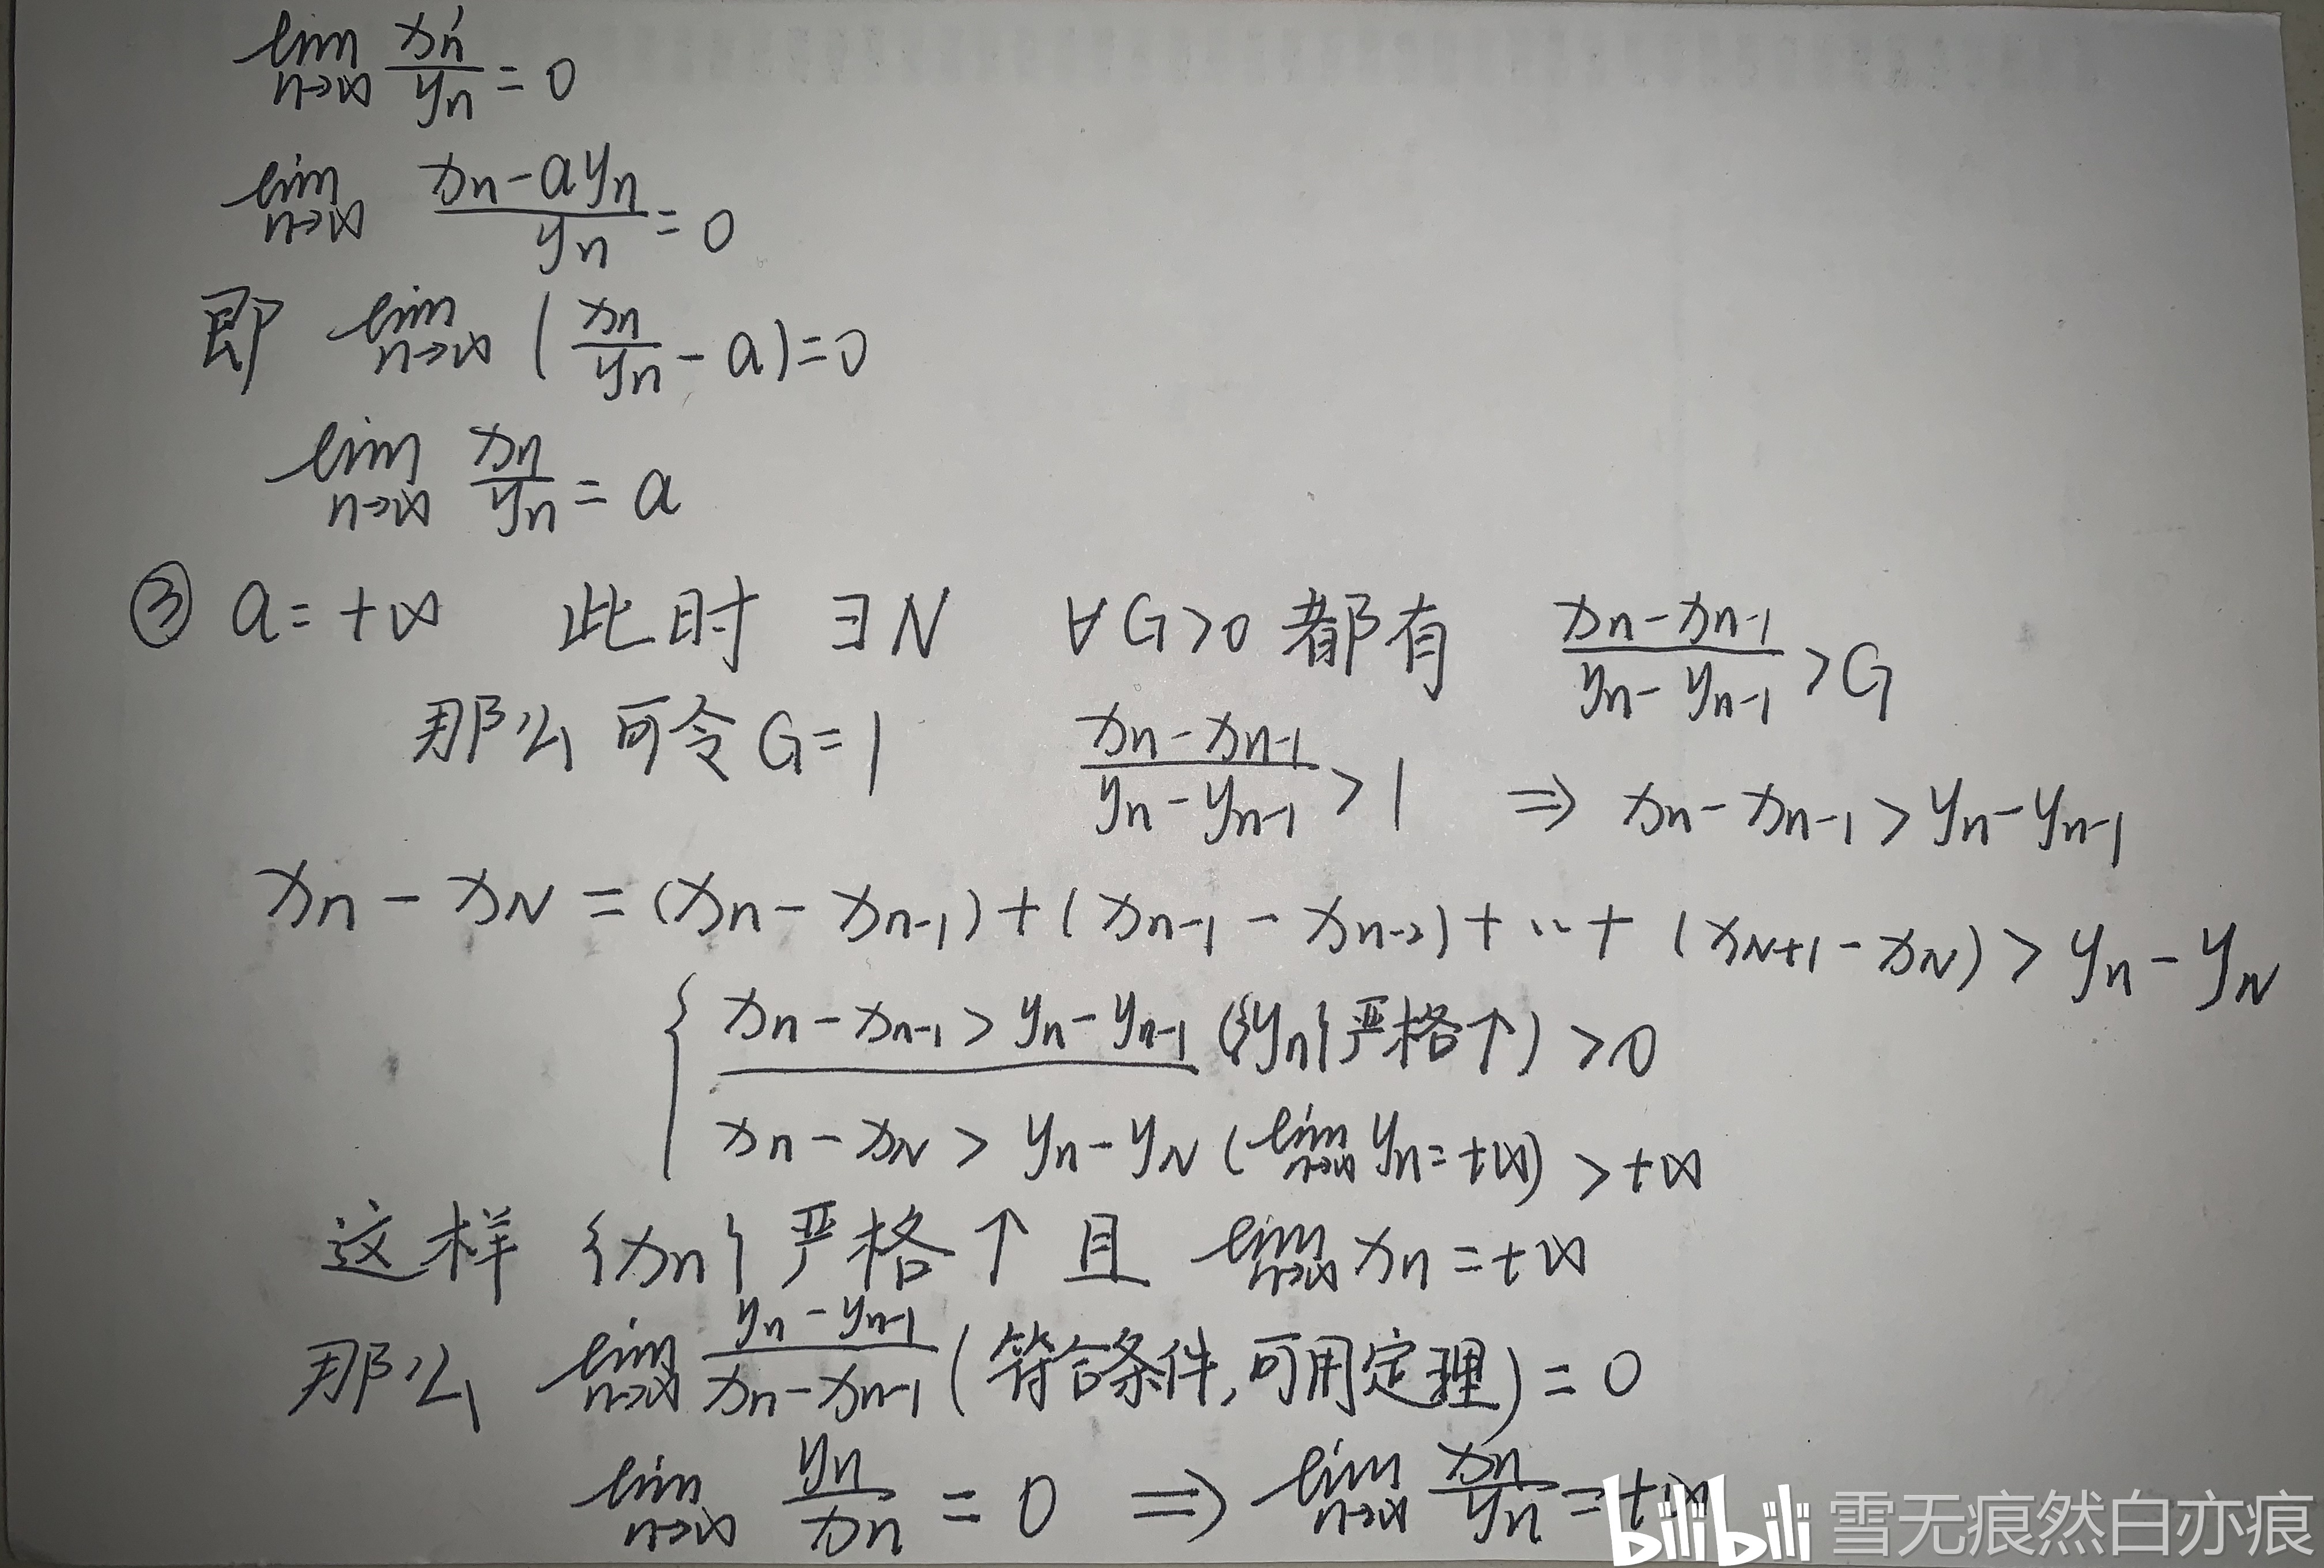 lim n→∞ xn'/yn = 0
lim n→∞ (xn - ayn)/yn = 0
即 lim n→∞ (xn/yn - a) = 0
lim n→∞ xn/yn = a
③ a = +∞ 此时 ∃N ∀G>0 都有 (xn - xn-1)/(yn - yn-1) > G
那么 可令 G = 1 (xn - xn-1)/(yn - yn-1) > 1 ⇒ xn - xn-1 > yn - yn-1
xn - xN = (xn - xn-1) + (xn-1 - xn-2) + ... + (xN+1 - xN) > yn - yN
{ xn - xn-1 > yn - yn-1 ({yn}严格↑) > 0
xn - xN > yn - yN (lim n→∞ yn = +∞) > +∞
这样 {xn} 严格↑ 且 lim n→∞ xn = +∞
那么 lim n→∞ (yn - yn-1)/(xn - xn-1) (符合条件,可用定理) = 0
lim n→∞ yn/xn = 0 ⇒ lim n→∞ xn/yn = +∞
bilibili 雪无痕然白亦痕